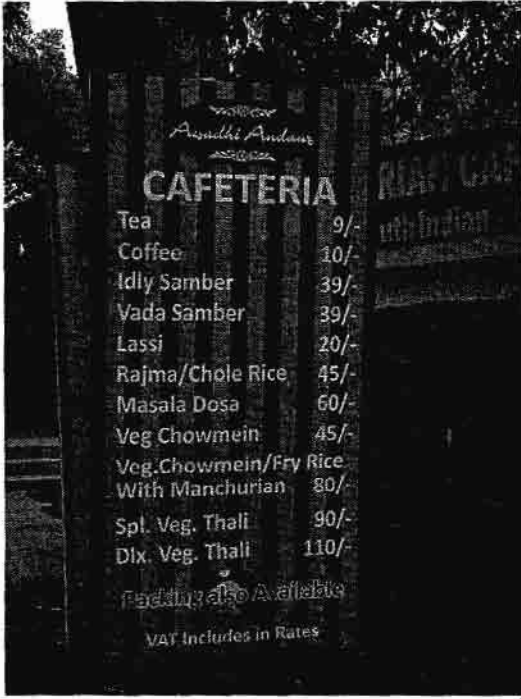 Awadhi Andaaz
CAFETERIA
Tea 9/-
Coffee 10/-
Idly Samber 39/-
Vada Samber 39/-
Lassi 20/-
Rajma/Chole Rice 45/-
Masala Dosa 60/-
Veg Chowmein 45/-
Veg.Chowmein/Fry Rice
With Manchurian 80/-
Spl. Veg. Thali 90/-
Dlx. Veg. Thali 110/-
Packing also Available
VAT Includes in Rates
uth Indian